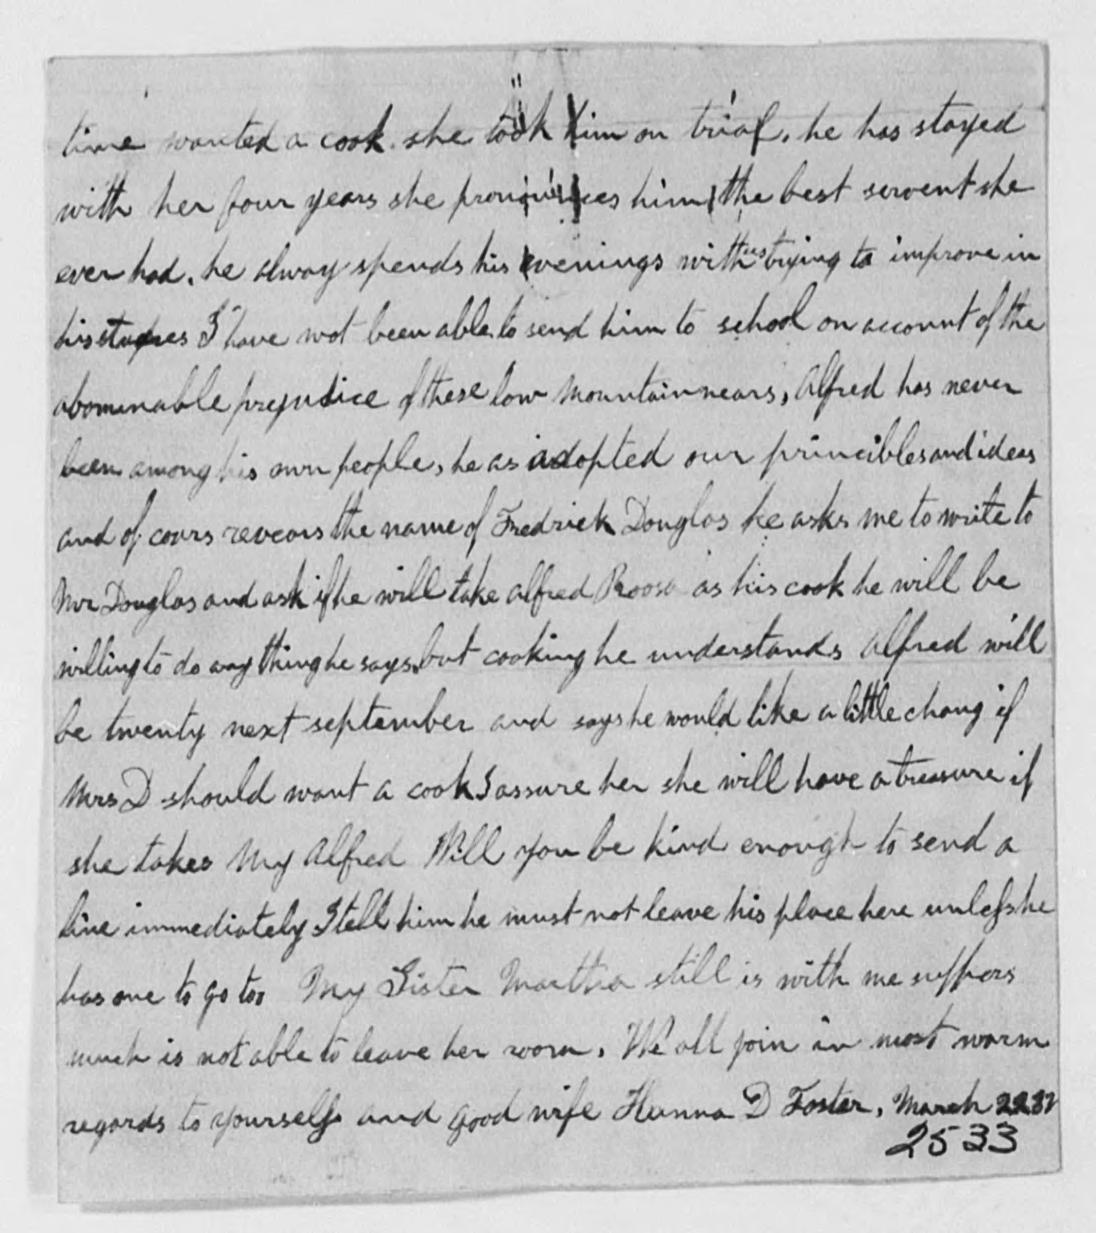 time wanted a cook. she took him on trial, he has stayed
with her four years she pronounces him the best servent she
ever had. he alway spends his evenings with us trying to improve in
his studies I have not been able to send him to school on account of the
abominable prejudice of these low Mountainnears, Alfred has never
been among his own people, he as adopted our principles and ideas
and of cours revears the name of Fredrick Douglas he asks me to write to
Mr Douglas and ask if he will take Alfred Roosa as his cook he will be
willing to do any thing he says, but cooking he understands Alfred will
be twenty next september and says he would like a little chang if
Mrs D should want a cook I assure her she will have a treasure if
she takes My Alfred Will you be kind enough to send a
line immediately I tell him he must not leave his place here unless he
has one to go too My Sister Martha still is with me suffers
much is not able to leave her room, We all join in most warm
regards to yourself and good wife Hanna D Foster, March
2533